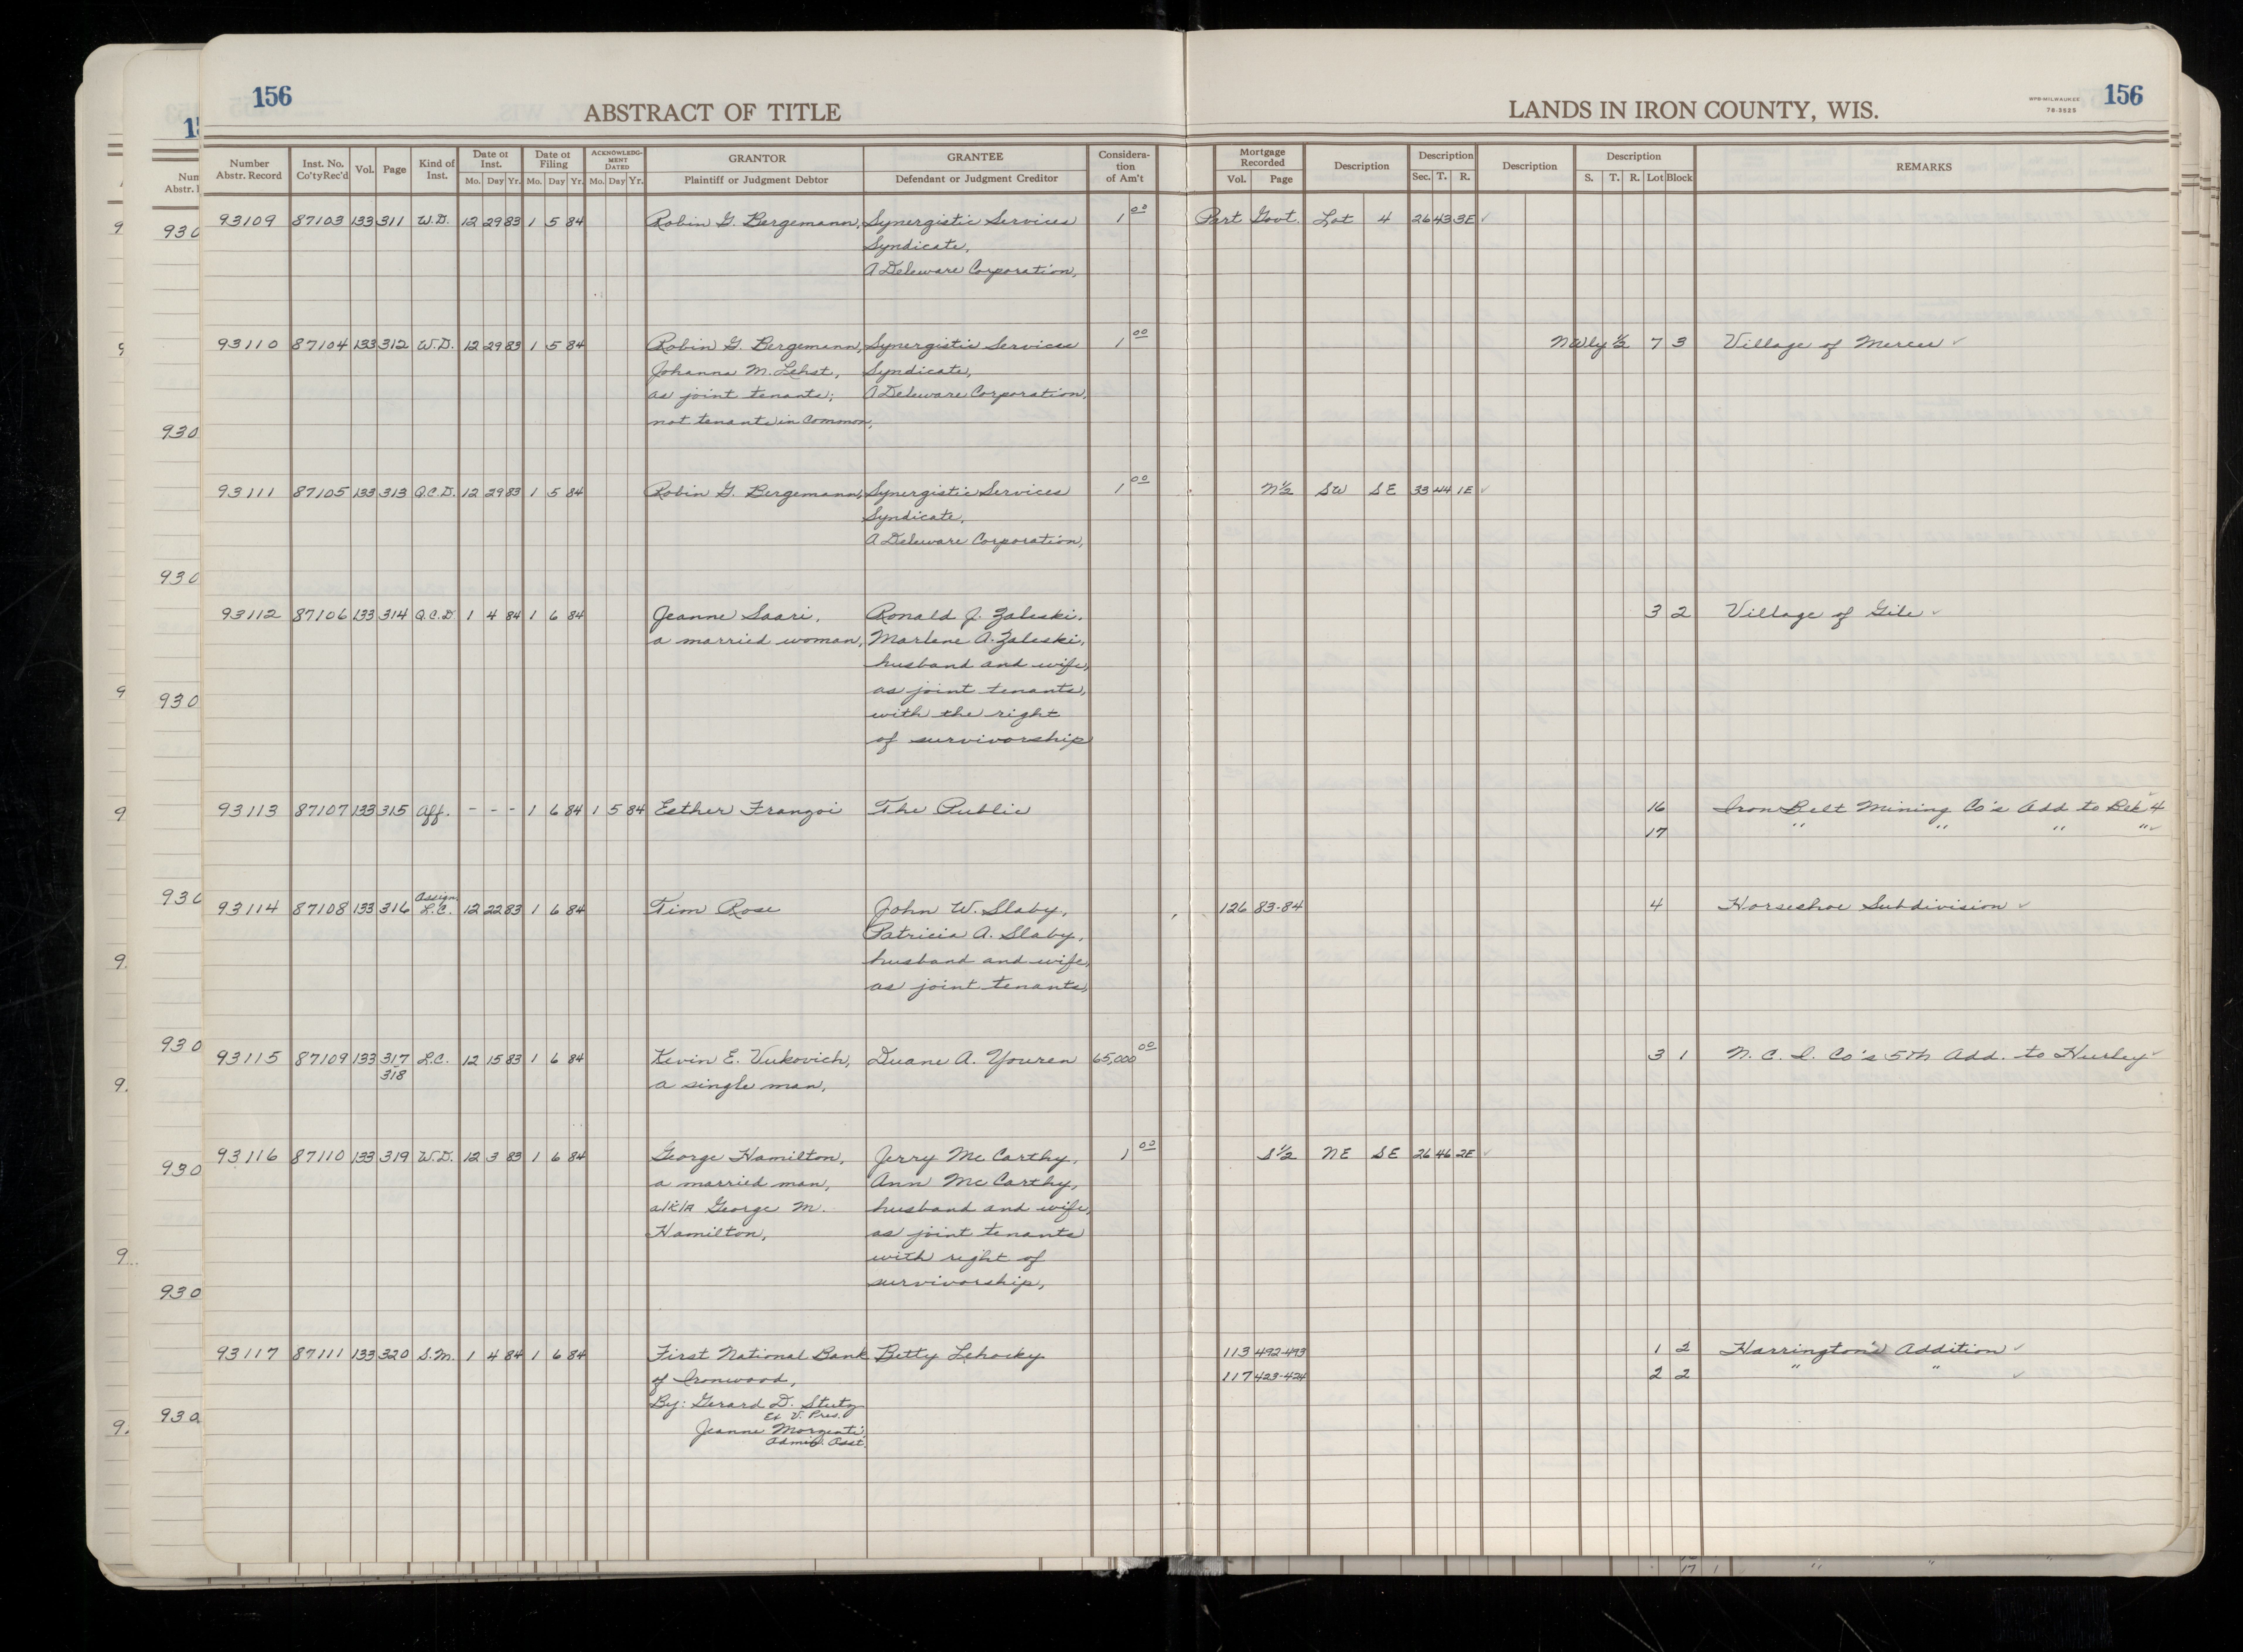 156
ABSTRACT OF TITLE
LANDS IN IRON COUNTY, WIS.
WPB-MILWAUKEE
78-3525
156
Number Abstr. Record Inst. No. Co'ty Rec'd Vol. Page Kind of Inst. Date of Inst. Mo. Day Yr. Date of Filing Mo. Day Yr. ACKNOWLEDGMENT DATED Mo. Day Yr. GRANTOR Plaintiff or Judgment Debtor GRANTEE Defendant or Judgment Creditor Consideration of Am't Mortgage Recorded Vol. Page Description Description Sec. T. R. Description Description S. T. R. Lot Block REMARKS
93109 87103 133 311 W.D. 12 29 83 1 5 84 Robin G. Bergemann, Synergistic Services 1 00 Part Govt. Lot 4 26 43 3E ✓
Syndicate,
A Deleware Corporation,
93110 87104 133 312 W.D. 12 29 83 1 5 84 Robin G. Bergemann, Synergistic Services 1 00 NWly ½ 7 3 Village of Mercer ✓
Johanna M. Lehst, Syndicate,
as joint tenants; A Deleware Corporation,
not tenants in Common,
93111 87105 133 313 Q.C.D. 12 29 83 1 5 84 Robin G. Bergemann, Synergistic Services 1 00 N½ SW SE 33 44 1E ✓
Syndicate,
A Deleware Corporation,
93112 87106 133 314 Q.C.D 1 4 84 1 6 84 Jeanne Saari, Ronald J. Zaleski, 3 2 Village of Gile ✓
a married woman, Marlene A. Zaleski,
husband and wife,
as joint tenants,
with the right
of survivorship
93113 87107 133 315 Aff. - - - 1 6 84 1 5 84 Esther Franzoi The Public 16 Iron Belt Mining Co's Add to Blk 4 ✓
17 " " " " ✓
93114 87108 133 316 Assign L.C. 12 22 83 1 6 84 Tim Rose John W. Slaby, 126 83-84 4 Horseshoe Subdivision ✓
Patricia A. Slaby,
husband and wife,
as joint tenants,
93115 87109 133 317 L.C. 12 15 83 1 6 84 Kevin E. Vukovich, Duane A. Youren 65,000 00 3 1 N. C. I. Co's 5th Add. to Hurley ✓
318 a single man,
93116 87110 133 319 W.D. 12 3 83 1 6 84 George Hamilton, Jerry McCarthy, 1 00 S½ NE SE 26 46 2E ✓
a married man, Ann McCarthy,
a/k/a George M. husband and wife,
Hamilton, as joint tenants
with right of
survivorship,
93117 87111 133 320 S.M. 1 4 84 1 6 84 First National Bank Betty Lehocky 113 492-493 1 2 Harrington's Addition ✓
of Ironwood, 117 423-424 2 2 " " ✓
By: Gerard D. Stutz
Ex V. Pres.
Jeanne Morzenti
Admin. Asst.